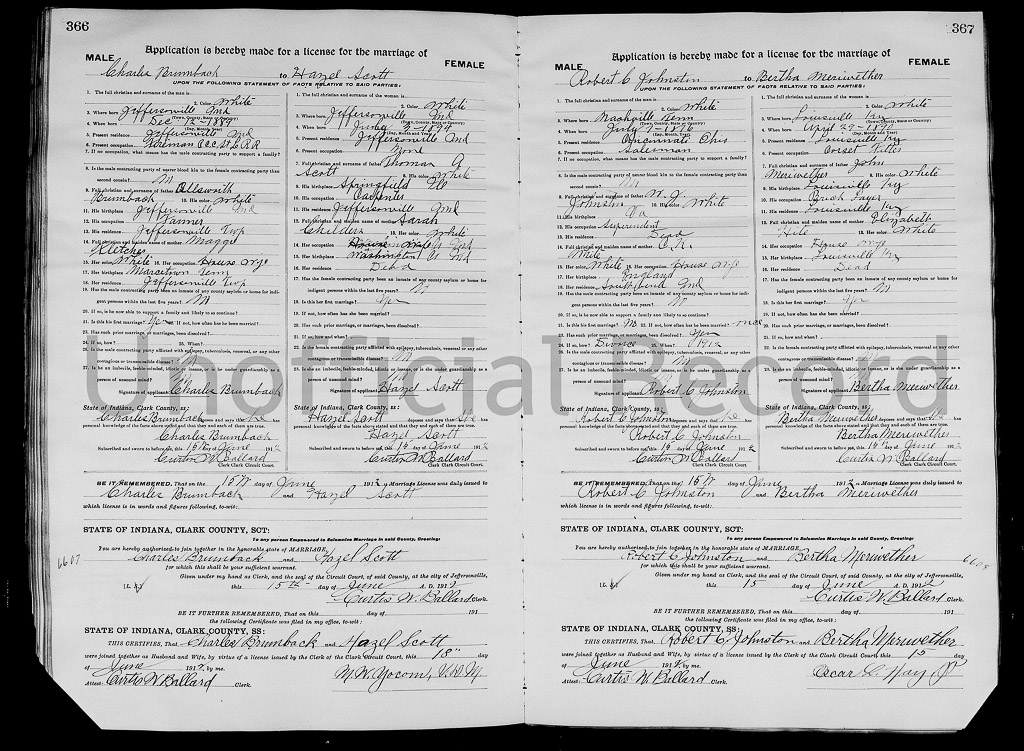 366
Application is hereby made for a license for the marriage of
MALE
FEMALE
Charles Brumback to Hazel Scott
UPON THE FOLLOWING STATEMENT OF FACTS RELATIVE TO SAID PARTIES:
1. The full christian and surname of the man is
2. Color White
3. Where born Jeffersonville Ind
4. When born Dec
5. Present residence Jeffersonville Ind
6. Present occupation Fireman
7. If no occupation, what means has the male contracting party to support a family?
8. Is the male contracting party of nearer blood kin to the female contracting party than
second cousin? No
9. Full christian and surname of father Ellsworth
Brumback 10. His color White
11. His birthplace Jeffersonville Ind
12. His occupation Farmer
13. His residence Jeffersonville Twp
14. Full christian and maiden name of mother Maggie
15. Her color White 16. Her occupation House wife
17. Her birthplace
18. Her residence Jeffersonville Twp
19. Has the male contracting party been an inmate of any county asylum or home for indi-
gent persons within the last five years? No
20. If so, is he now able to support a family and likely to so continue?
21. Is this his first marriage? Yes 22. If not, how often has he been married?
23. Has such prior marriage, or marriages, been dissolved?
24. If so, how? 25. When?
26. Is the male contracting party afflicted with epilepsy, tuberculosis, venereal, or any other
contagious or transmissible disease? No
27. Is he an imbecile, feeble-minded, idiotic, or insane, or is he under guardianship as a
person of unsound mind?
Signature of applicant Charles Brumback
State of Indiana, Clark County, ss:
Charles Brumback deposes and says that he has
personal knowledge of the facts above stated and that they and each of them are true.
Charles Brumback
Subscribed and sworn to before me, this 15th day of June 1912
Curtis W. Ballard
Clerk Clark Circuit Court.
1. The full christian and surname of the woman is
2. Color White
3. Where born Jeffersonville Ind
4. When born
5. Present residence Jeffersonville Ind
6. Present occupation None
7. Full christian and surname of father Thomas A
Scott 8. His color White
9. His birthplace Springfield
10. His occupation Carpenter
11. His residence Jeffersonville Ind
12. Full christian and maiden name of mother Sarah
Childers 13. Her color White
14. Her occupation House wife
15. Her birthplace Washington Co Ind
16. Her residence Dead
17. Has the female contracting party been an inmate of any county asylum or home for
indigent persons within the last five years? No
18. Is this her first marriage? Yes
19. If not, how often has she been married?
20. Has such prior marriage, or marriages, been dissolved?
21. If so, how and when?
22. Is the female contracting party afflicted with epilepsy, tuberculosis, venereal or any other
contagious or transmissible disease? No
23. Is she an imbecile, feeble-minded, idiotic, or insane, or is she under guardianship as a
person of unsound mind? No
Signature of applicant Hazel Scott
State of Indiana, Clark County, ss:
Hazel Scott deposes and says that she has
personal knowledge of the facts above stated and that they and each of them are true.
Hazel Scott
Subscribed and sworn to before me, this 15 day of June 1912
Curtis W Ballard
Clerk Clark Circuit Court.
BE IT REMEMBERED, That on the 15th day of June 1912 a Marriage License was duly issued to
Charles Brumback and Hazel Scott
which license is in words and figures following, to-wit:
STATE OF INDIANA, CLARK COUNTY, SCT:
To any person Empowered to Solemnize Marriage in said County, Greeting:
You are hereby authorized to join together in the honorable state of MARRIAGE,
6607
Charles Brumback and Hazel Scott
for which this shall be your sufficient warrant.
Given under my hand as Clerk, and the seal of the Circuit Court, of said County, at the city of Jeffersonville,
this 15th day of June A. D. 1912
Curtis W. Ballard Clerk.
BE IT FURTHER REMEMBERED, That on this day of 191
the following Certificate was filed in my office, to-wit:
STATE OF INDIANA, CLARK COUNTY, SS:
THIS CERTIFIES, That Charles Brumback and Hazel Scott
were joined together as Husband and Wife, by virtue of a license issued by the Clerk of the Clark Circuit Court, this 18" day
of June 1912, by me. M. W. Yocom, V.D.M.
Attest: Curtis W Ballard Clerk.
367
Application is hereby made for a license for the marriage of
MALE
FEMALE
Robert C Johnston to Bertha Meriwether
UPON THE FOLLOWING STATEMENT OF FACTS RELATIVE TO SAID PARTIES:
1. The full christian and surname of the man is
2. Color White
3. Where born Nashville Tenn
4. When born July 7-1876
5. Present residence Cincinnati Ohio
6. Present occupation Salesman
7. If no occupation, what means has the male contracting party to support a family?
8. Is the male contracting party of nearer blood kin to the female contracting party than
second cousin? No
9. Full christian and surname of father
Johnston 10. His color White
11. His birthplace Va
12. His occupation
13. His residence Dead
14. Full christian and maiden name of mother
White
15. Her color White 16. Her occupation House wife
17. Her birthplace England
18. Her residence South bend Ind
19. Has the male contracting party been an inmate of any county asylum or home for indi-
gent persons within the last five years? No
20. If so, is he now able to support a family and likely to so continue?
21. Is this his first marriage? No 22. If not, how often has he been married? once
23. Has such prior marriage, or marriages, been dissolved? Yes
24. If so, how? Divorce 25. When? 1912
26. Is the male contracting party afflicted with epilepsy, tuberculosis, venereal, or any other
contagious or transmissible disease? No
27. Is he an imbecile, feeble-minded, idiotic, or insane, or is he under guardianship as a
person of unsound mind?
Signature of applicant Robert C. Johnston
State of Indiana, Clark County, ss:
Robert C Johnston deposes and says that he has
personal knowledge of the facts above stated and that they and each of them are true.
Robert C Johnston
Subscribed and sworn to before me, this 15 day of June 1912
Curtis W Ballard
Clerk Clark Circuit Court.
1. The full christian and surname of the woman is
2. Color White
3. Where born Louisville Ky
4. When born April 29
5. Present residence Louisville Ky
6. Present occupation Corset Fitter
7. Full christian and surname of father John
Meriwether 8. His color White
9. His birthplace Louisville Ky
10. His occupation Brick Layer
11. His residence Louisville Ky
12. Full christian and maiden name of mother Elizabeth
Hite 13. Her color White
14. Her occupation House wife
15. Her birthplace Louisville Ky
16. Her residence Dead
17. Has the female contracting party been an inmate of any county asylum or home for
indigent persons within the last five years? No
18. Is this her first marriage? Yes
19. If not, how often has she been married?
20. Has such prior marriage, or marriages, been dissolved?
21. If so, how and when?
22. Is the female contracting party afflicted with epilepsy, tuberculosis, venereal or any other
contagious or transmissible disease?
23. Is she an imbecile, feeble-minded, idiotic, or insane, or is she under guardianship as a
person of unsound mind?
Signature of applicant Bertha Meriwether
State of Indiana, Clark County, ss:
Bertha Meriwether deposes and says that she has
personal knowledge of the facts above stated and that they and each of them are true.
Bertha Meriwether
Subscribed and sworn to before me, this 15 day of June 1912
Curtis W Ballard
Clerk Clark Circuit Court.
BE IT REMEMBERED, That on the 15th day of June 1912 a Marriage License was duly issued to
Robert C Johnston and Bertha Meriwether
which license is in words and figures following, to-wit:
STATE OF INDIANA, CLARK COUNTY, SCT:
To any person Empowered to Solemnize Marriage in said County, Greeting:
You are hereby authorized to join together in the honorable state of MARRIAGE,
Robert C Johnston and Bertha Meriwether
6608
for which this shall be your sufficient warrant.
Given under my hand as Clerk, and the seal of the Circuit Court, of said County, at the city of Jeffersonville,
this 15 day of June A. D. 1912
Curtis W. Ballard Clerk.
BE IT FURTHER REMEMBERED, That on this day of 191
the following Certificate was filed in my office, to-wit:
STATE OF INDIANA, CLARK COUNTY, SS:
THIS CERTIFIES, That Robert C Johnston and Bertha Meriwether
were joined together as Husband and Wife, by virtue of a license issued by the Clerk of the Clark Circuit Court, this 15 day
of June 1912, by me. Oscar L. Hay JP
Attest: Curtis W. Ballard Clerk.
Unofficial Record